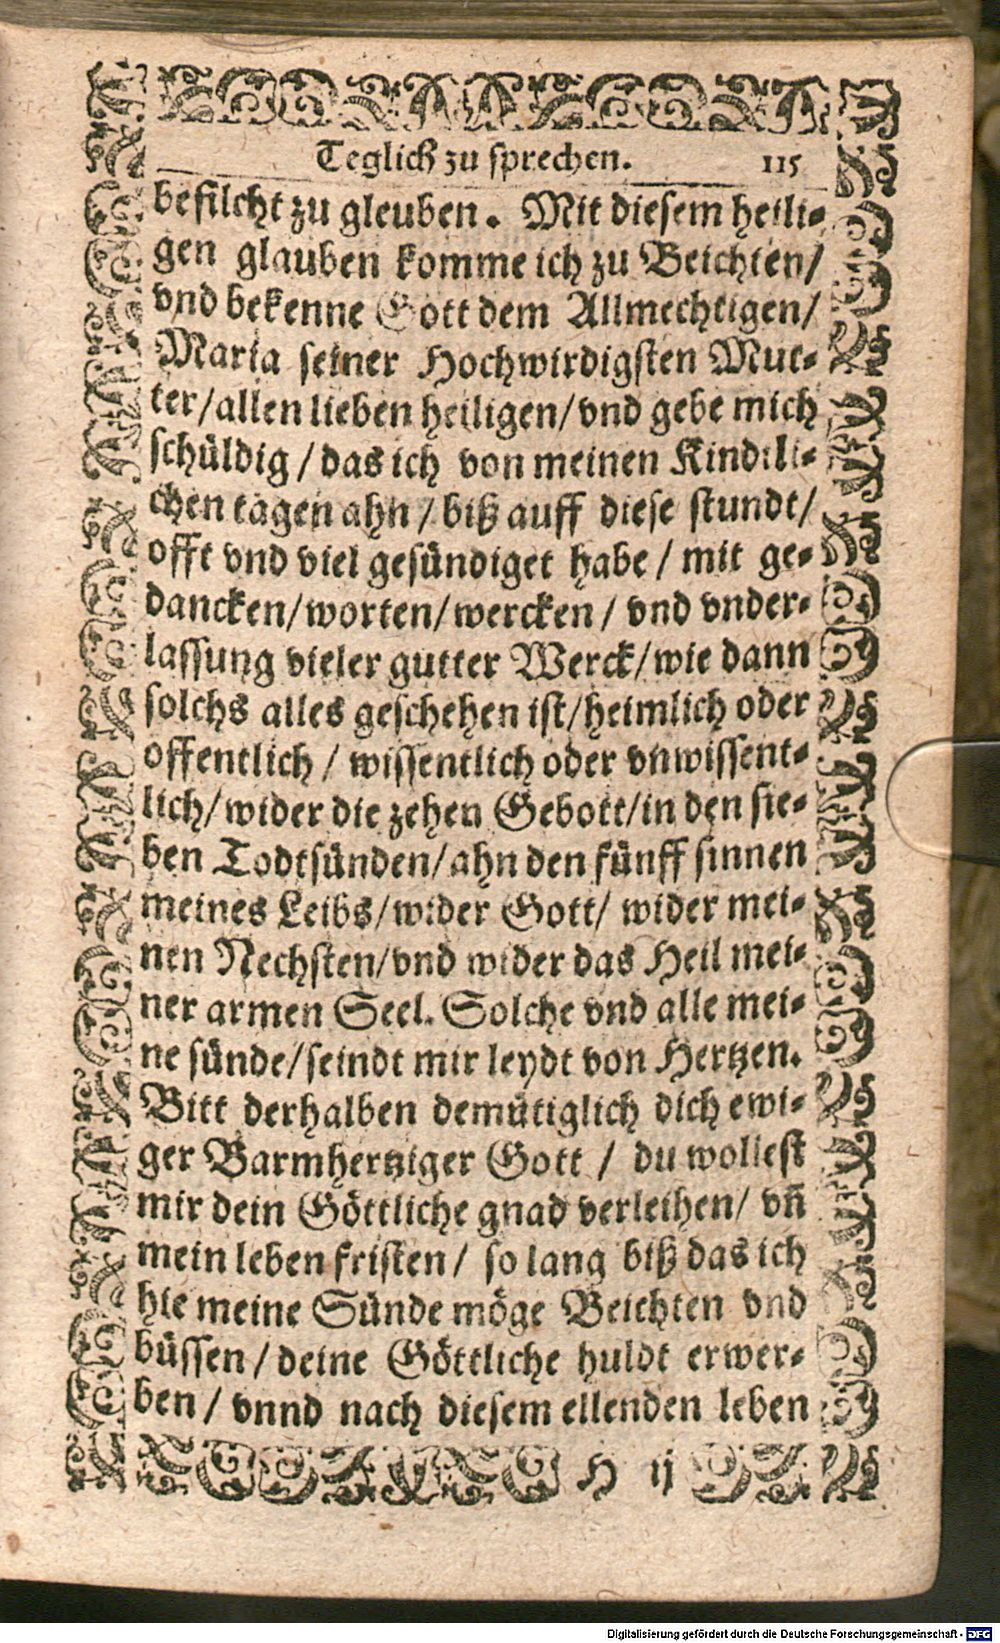 Teglich zu sprechen. 115
befilcht zu gleuben. Mit diesem heili-
gen glauben komme ich zu Beichten/
vnd bekenne Gott dem Allmechtigen/
Maria seiner Hochwirdigsten Mut-
ter/allen lieben heiligen/vnd gebe mich
schüldig/das ich von meinen Kindtli-
chen tagen ahn/biß auff diese stundt/
offt vnd viel gesündiget habe/mit ge-
dancken/worten/wercken/vnd vnder-
lassung vieler gutter Werck/wie dann
solchs alles geschehen ist/heimlich oder
offentlich/wissentlich oder vnwissent-
lich/wider die zehen Gebott/in den sie-
ben Todtsünden/ahn den fünff sinnen
meines Leibs/wider Gott/wider mei-
nen Nechsten/vnd wider das Heil mei-
ner armen Seel. Solche vnd alle mei-
ne sünde/seindt mir leydt von Hertzen.
Bitt derhalben demütiglich dich ewi-
ger Barmhertziger Gott/du wollest
mir dein Göttliche gnad verleihen/vñ
mein leben fristen/so lang biß das ich
hie meine Sünde möge Beichten vnd
büssen/deine Göttliche huldt erwer-
ben/vnnd nach diesem ellenden leben
H ij
Digitalisierung gefördert durch die Deutsche Forschungsgemeinschaft - DFG